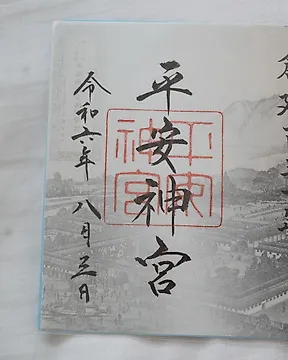 平安神宮
平安
神宮
令和六年 八月三日